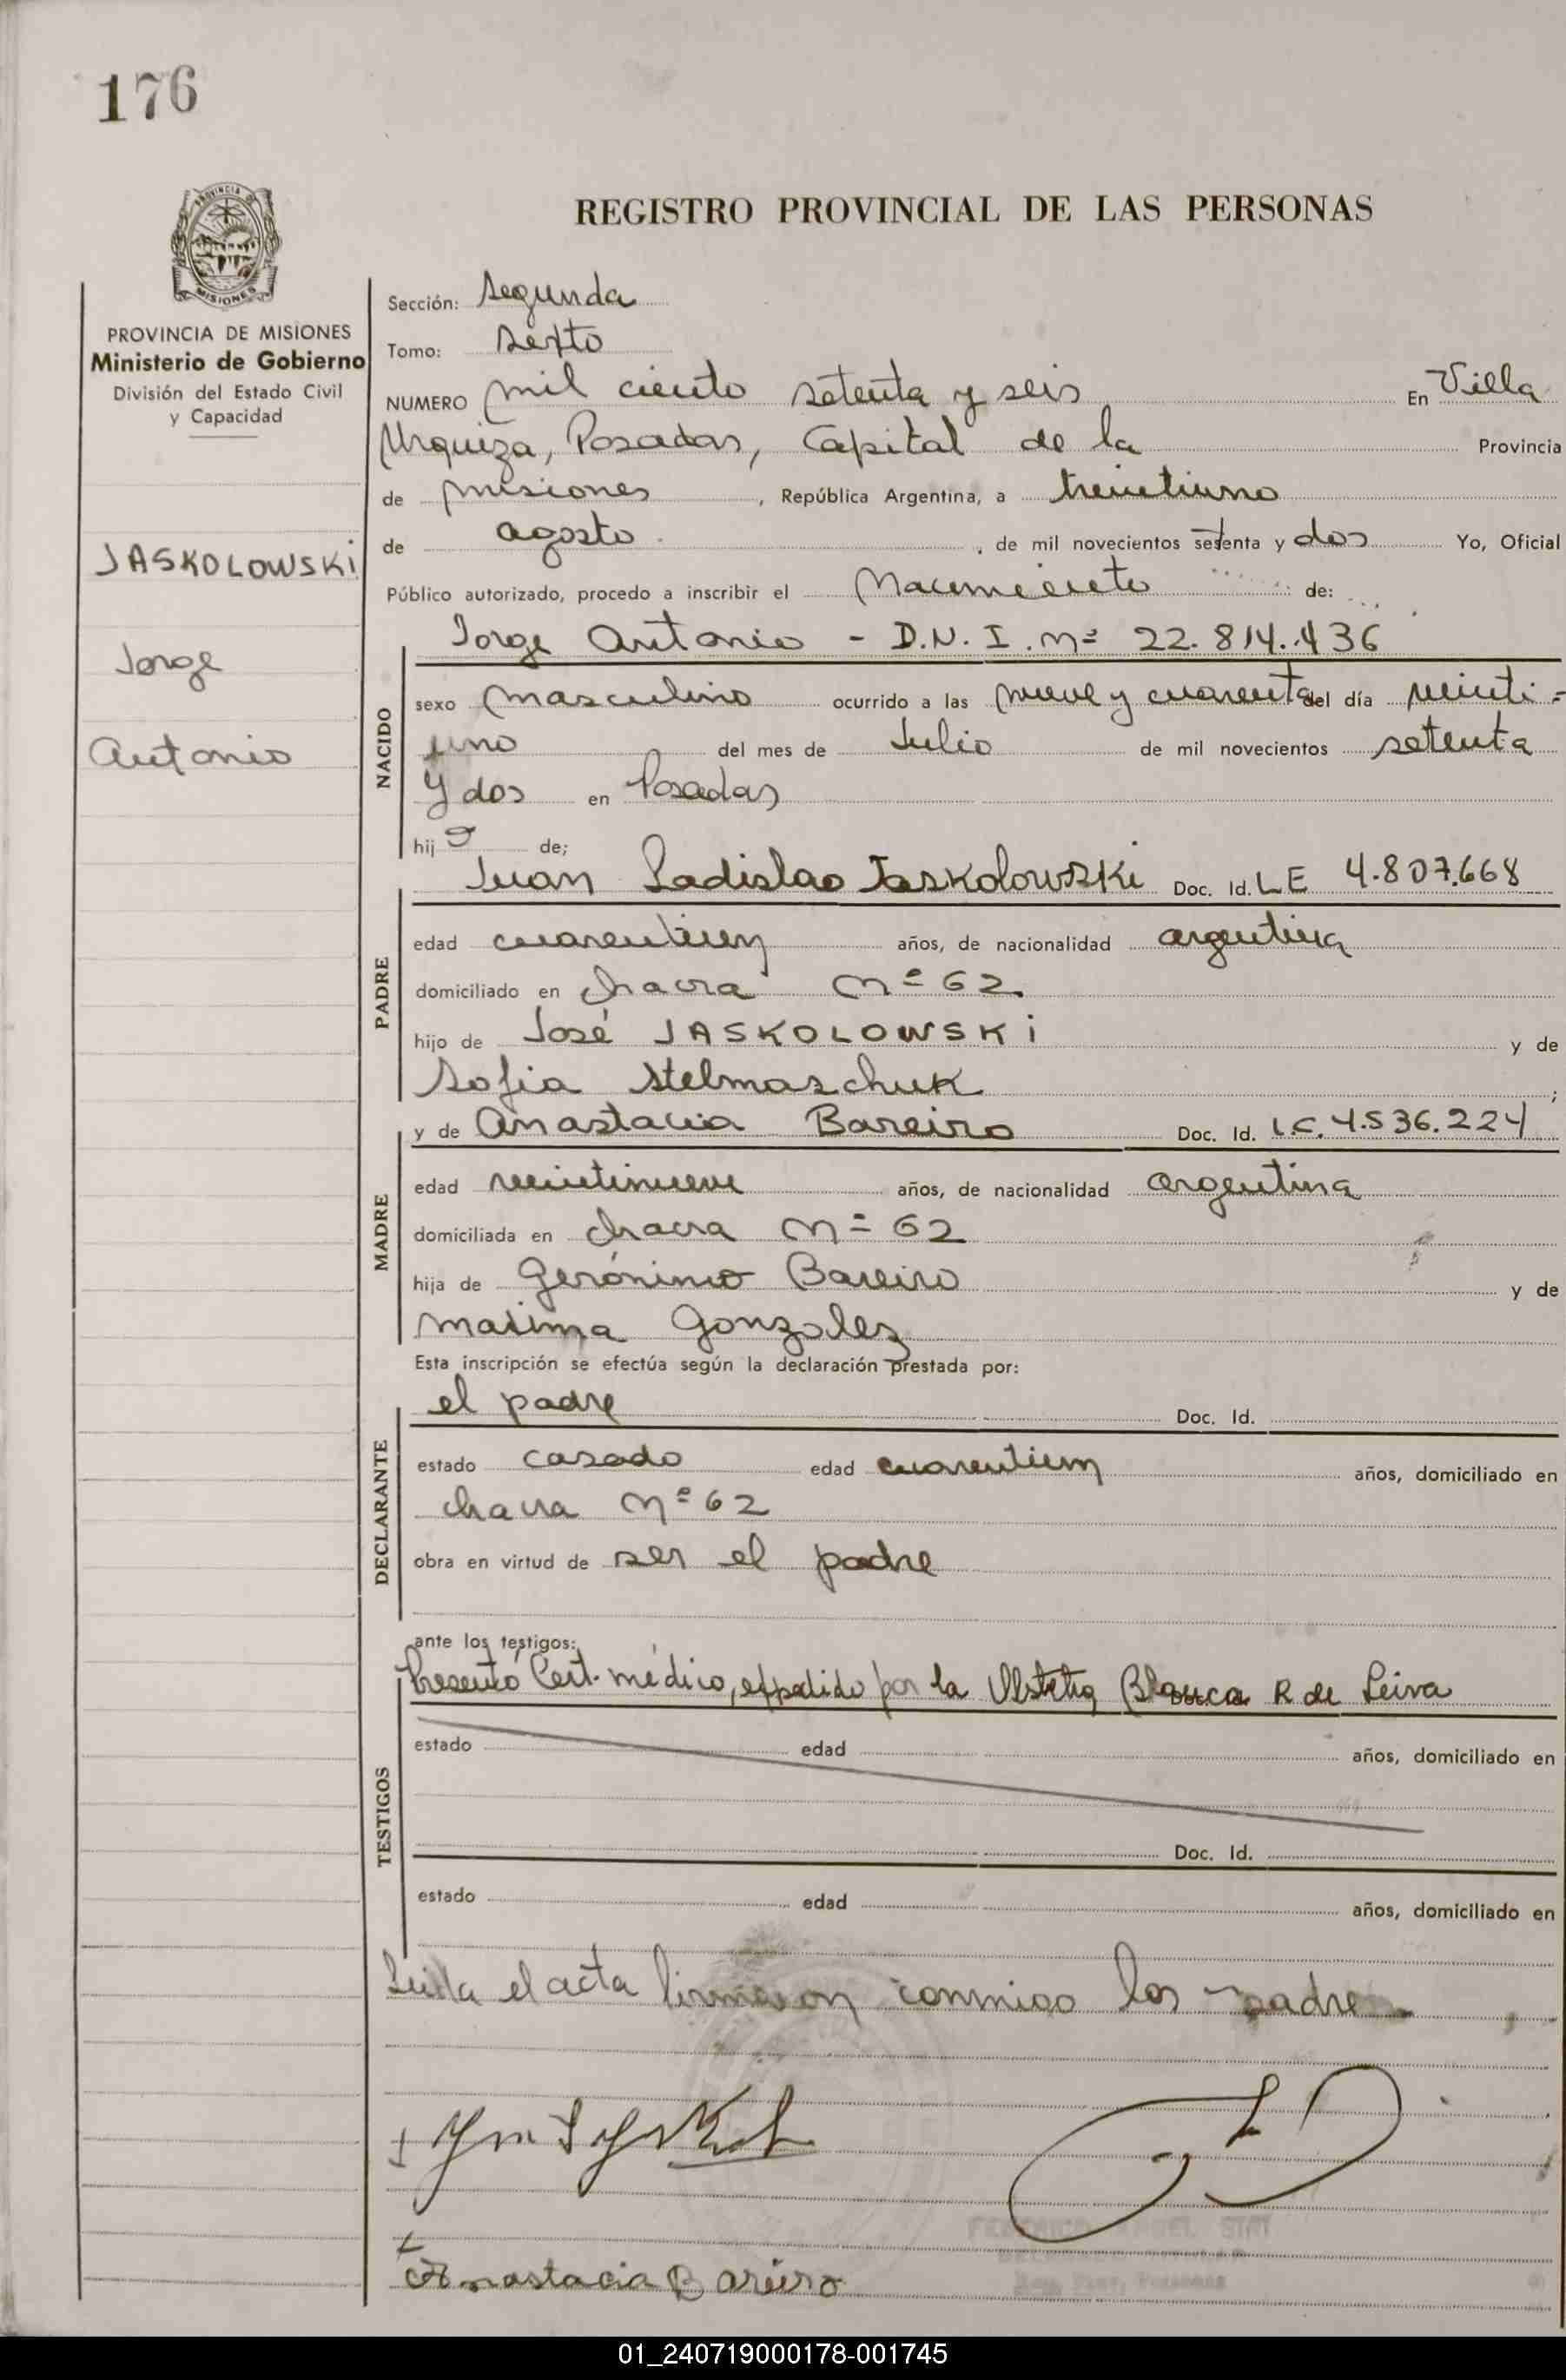 176
PROVINCIA
MISIONES
REGISTRO PROVINCIAL DE LAS PERSONAS
PROVINCIA DE MISIONES
Ministerio de Gobierno
División del Estado Civil
y Capacidad
JASKOLOWSKI
Jorge
Antonio
Sección: Segunda
Tomo: Sexto
NUMERO mil ciento setenta y seis En Villa
Urquiza, Posadas, Capital de la Provincia
de misiones, República Argentina, a treintiuno
de agosto, de mil novecientos setenta y dos Yo, Oficial
Público autorizado, procedo a inscribir el Nacimiento de:
Jorge Antonio - D.N.I. nº 22.814.436
NACIDO
sexo masculino ocurrido a las nueve y cuarenta del día veinti=
uno del mes de Julio de mil novecientos setenta
y dos en Posadas
hijo de;
Juan Ladislao Jaskolowski Doc. Id. LE 4.807.668
PADRE
edad cuarentiun años, de nacionalidad argentina
domiciliado en chacra nº 62
hijo de José JASKOLOWSKI y de
Sofia Stelmaschuk;
y de Anastacia Bareiro Doc. Id. L.C. 4.536.224
MADRE
edad veintinueve años, de nacionalidad argentina
domiciliada en chacra nº 62
hija de Gerónimo Bareiro y de
Maxima Gonzalez
Esta inscripción se efectúa según la declaración prestada por:
el padre Doc. Id.
DECLARANTE
estado casado edad cuarentiun años, domiciliado en
chacra nº 62
obra en virtud de ser el padre
ante los testigos:
Presentó Cert. médico, expedido por la Obstetra Blanca R de Leiva
TESTIGOS
estado edad años, domiciliado en
Doc. Id.
estado edad años, domiciliado en
Leida el acta firmaron conmigo los padres
Anastacia Bareiro
01_240719000178-001745